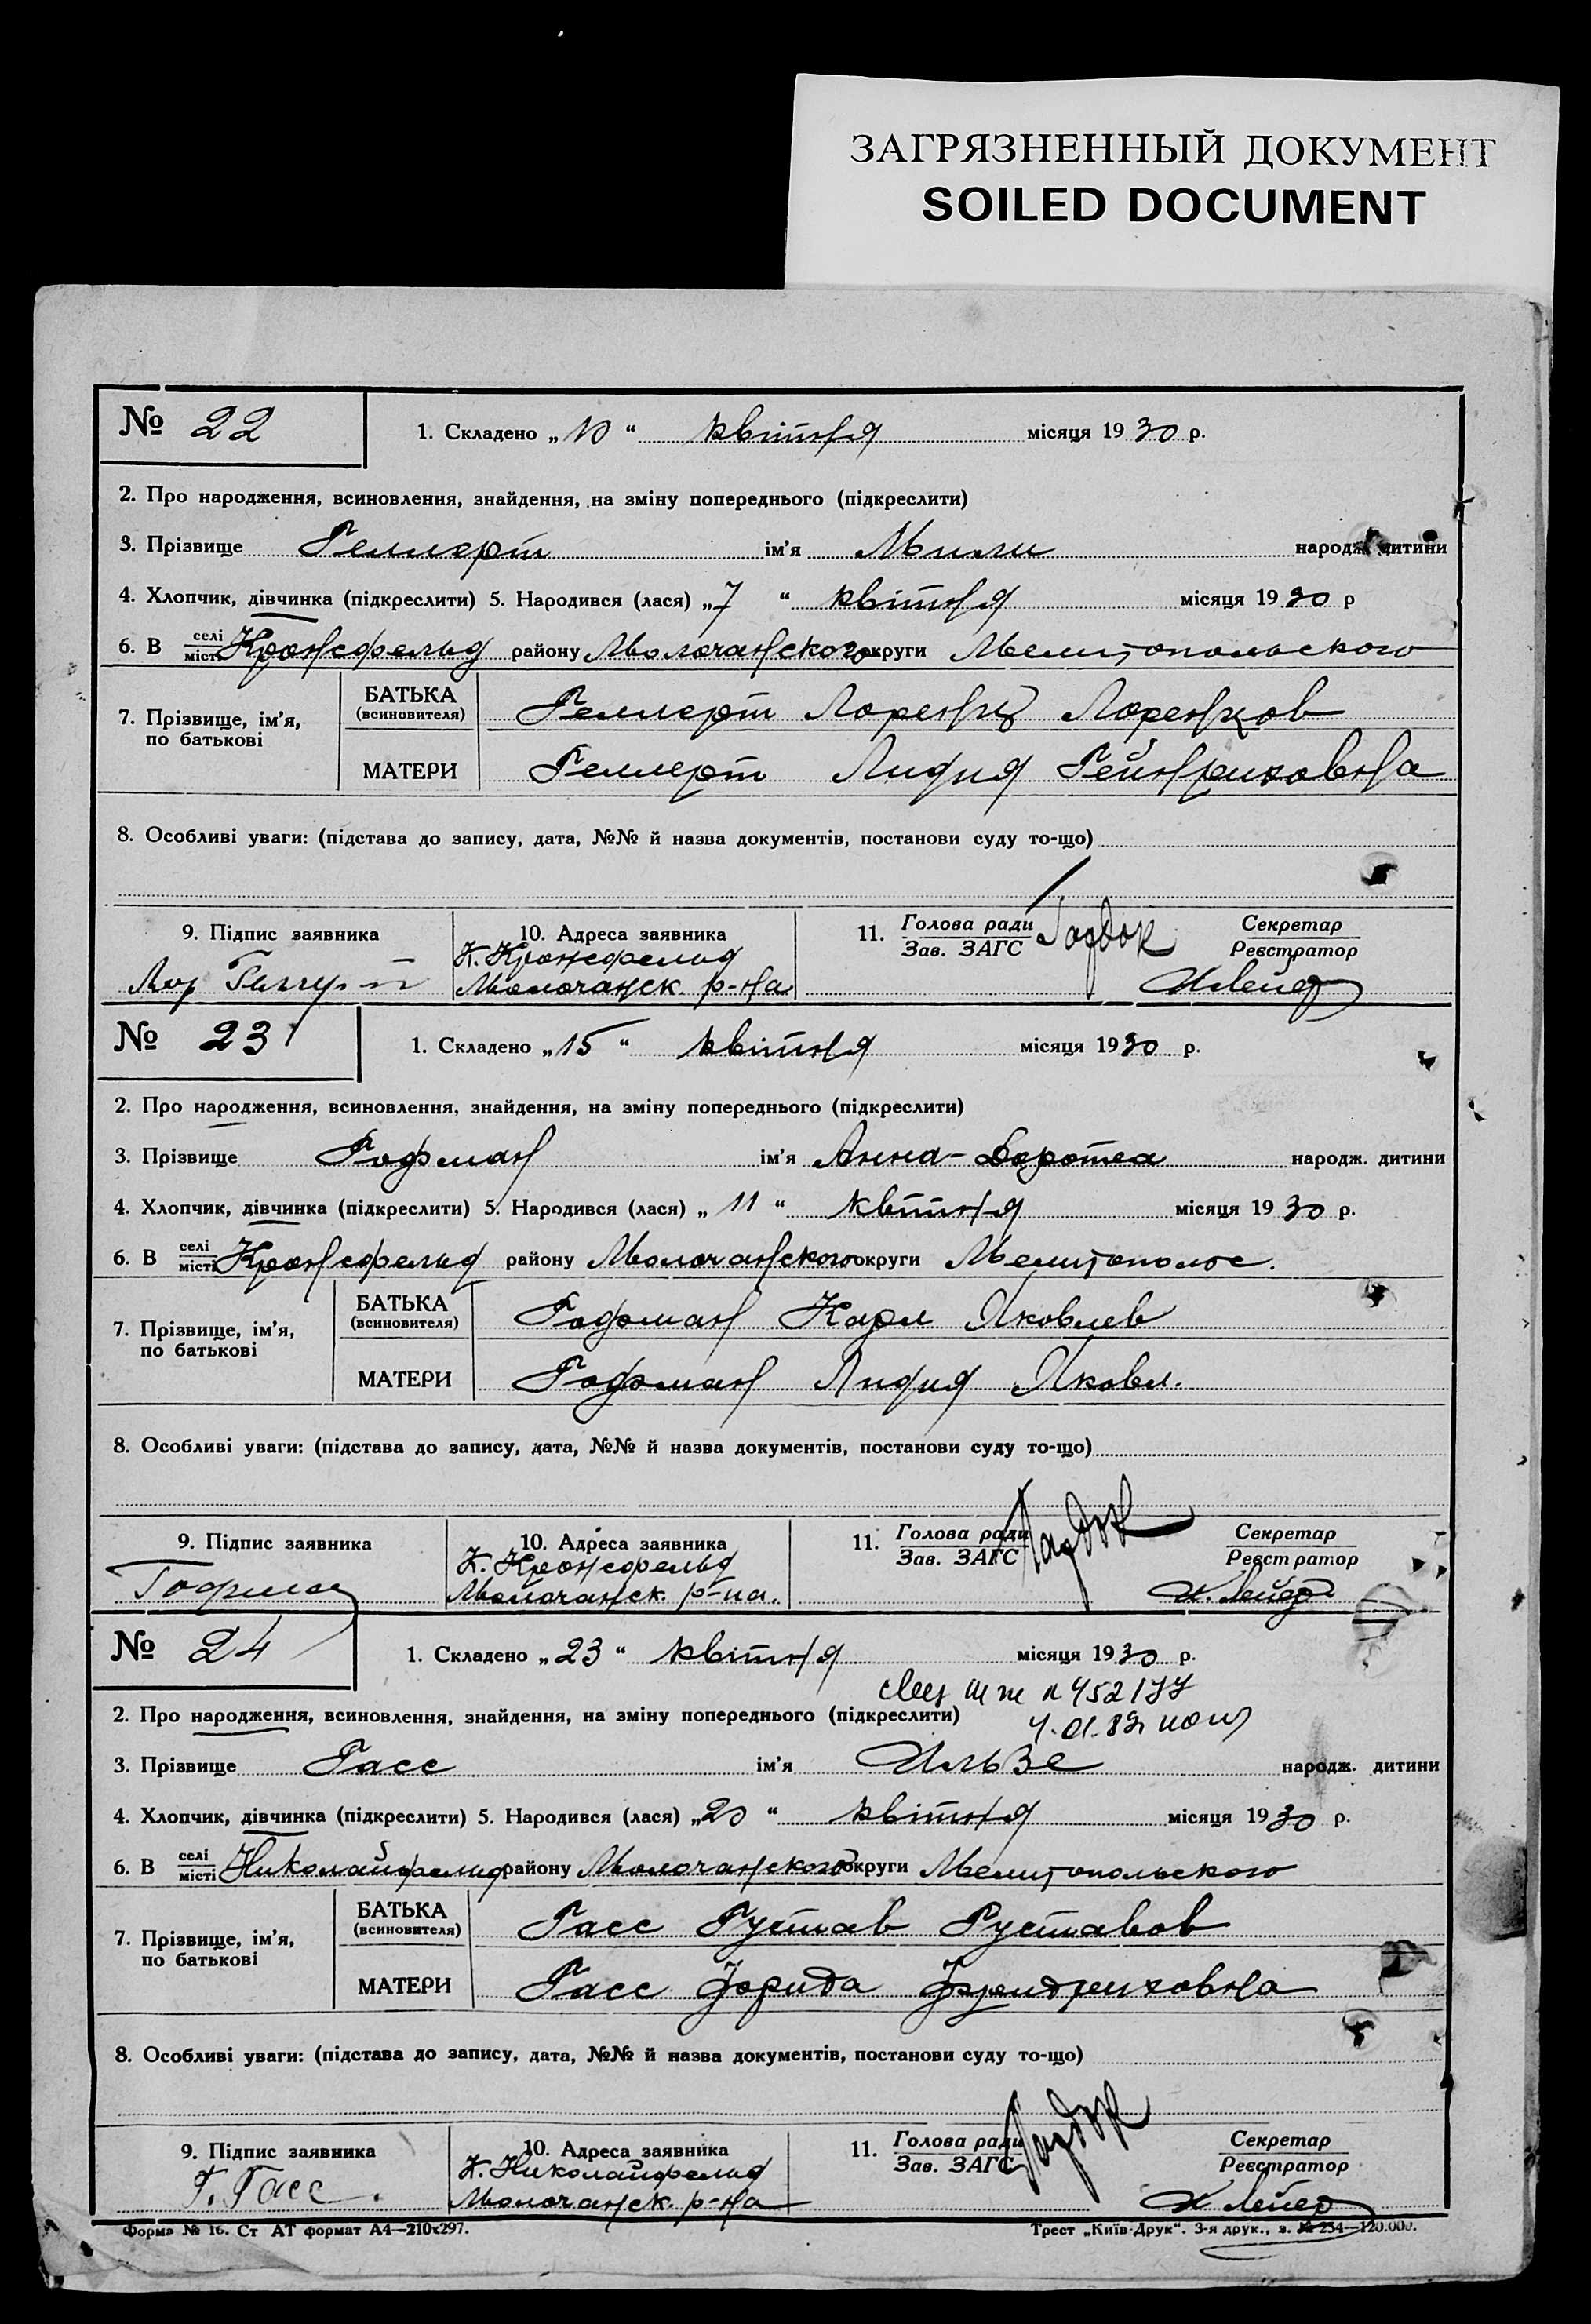 ЗАГРЯЗНЕННЫЙ ДОКУМЕНТ
SOILED DOCUMENT
№ 22
1. Складено „10“ квітня місяця 1930 р.
2. Про народження, всиновлення, знайдення, на зміну попереднього (підкреслити)
3. Прізвище Геллерт ім’я Мили народж. дитини
4. Хлопчик, дівчинка (підкреслити) 5. Народився (лася) „7“ квітня місяця 1930 р
6. В селі місті Кронсфельд району Молочанского округи Мелитопольского
7. Прізвище, ім’я, по батькові
БАТЬКА (всиновителя) Геллерт Лоренц Лоренцов
МАТЕРИ Геллерт Лидия Гейнриховна
8. Особливі уваги: (підстава до запису, дата, №№ й назва документів, постанови суду то-що)
9. Підпис заявника
10. Адреса заявника
К. Кронсфельд
Молочанск. р-на
11. Голова ради Зав. ЗАГС
Секретар Реєстратор
№ 23
1. Складено „15“ квітня місяця 1930 р.
2. Про народження, всиновлення, знайдення, на зміну попереднього (підкреслити)
3. Прізвище Гофман ім’я Анна-Доротеа народж. дитини
4. Хлопчик, дівчинка (підкреслити) 5. Народився (лася) „11“ квітня місяця 1930 р.
6. В селі місті Кронсфельд району Молочанского округи Мелитополос.
7. Прізвище, ім’я, по батькові
БАТЬКА (всиновителя) Гофман Карл Яковлев
МАТЕРИ Гофман Лидия Яковл.
8. Особливі уваги: (підстава до запису, дата, №№ й назва документів, постанови суду то-що)
9. Підпис заявника
Гофман
10. Адреса заявника
К. Кронсфельд
Молочанск. р-на.
11. Голова ради Зав. ЗАГС
Секретар Реєстратор
№ 24
1. Складено „23“ квітня місяця 1930 р.
2. Про народження, всиновлення, знайдення, на зміну попереднього (підкреслити)
3. Прізвище Гасс ім’я Ильзе народж. дитини
4. Хлопчик, дівчинка (підкреслити) 5. Народився (лася) „20“ квітня місяця 1930 р.
6. В селі місті Николайфельд району Молочанского округи Мелитопольского
7. Прізвище, ім’я, по батькові
БАТЬКА (всиновителя) Гасс Густав Густавов
МАТЕРИ Гасс Фрида Фридриховна
8. Особливі уваги: (підстава до запису, дата, №№ й назва документів, постанови суду то-що)
9. Підпис заявника
Г. Гасс.
10. Адреса заявника
К. Николайфельд
Молочанск. р-на
11. Голова ради Зав. ЗАГС
Секретар Реєстратор
Форма № 16. Ст АТ формат А4—210х297.
Трест „Київ-Друк“. 3-я друк., з. № 254—120.000.